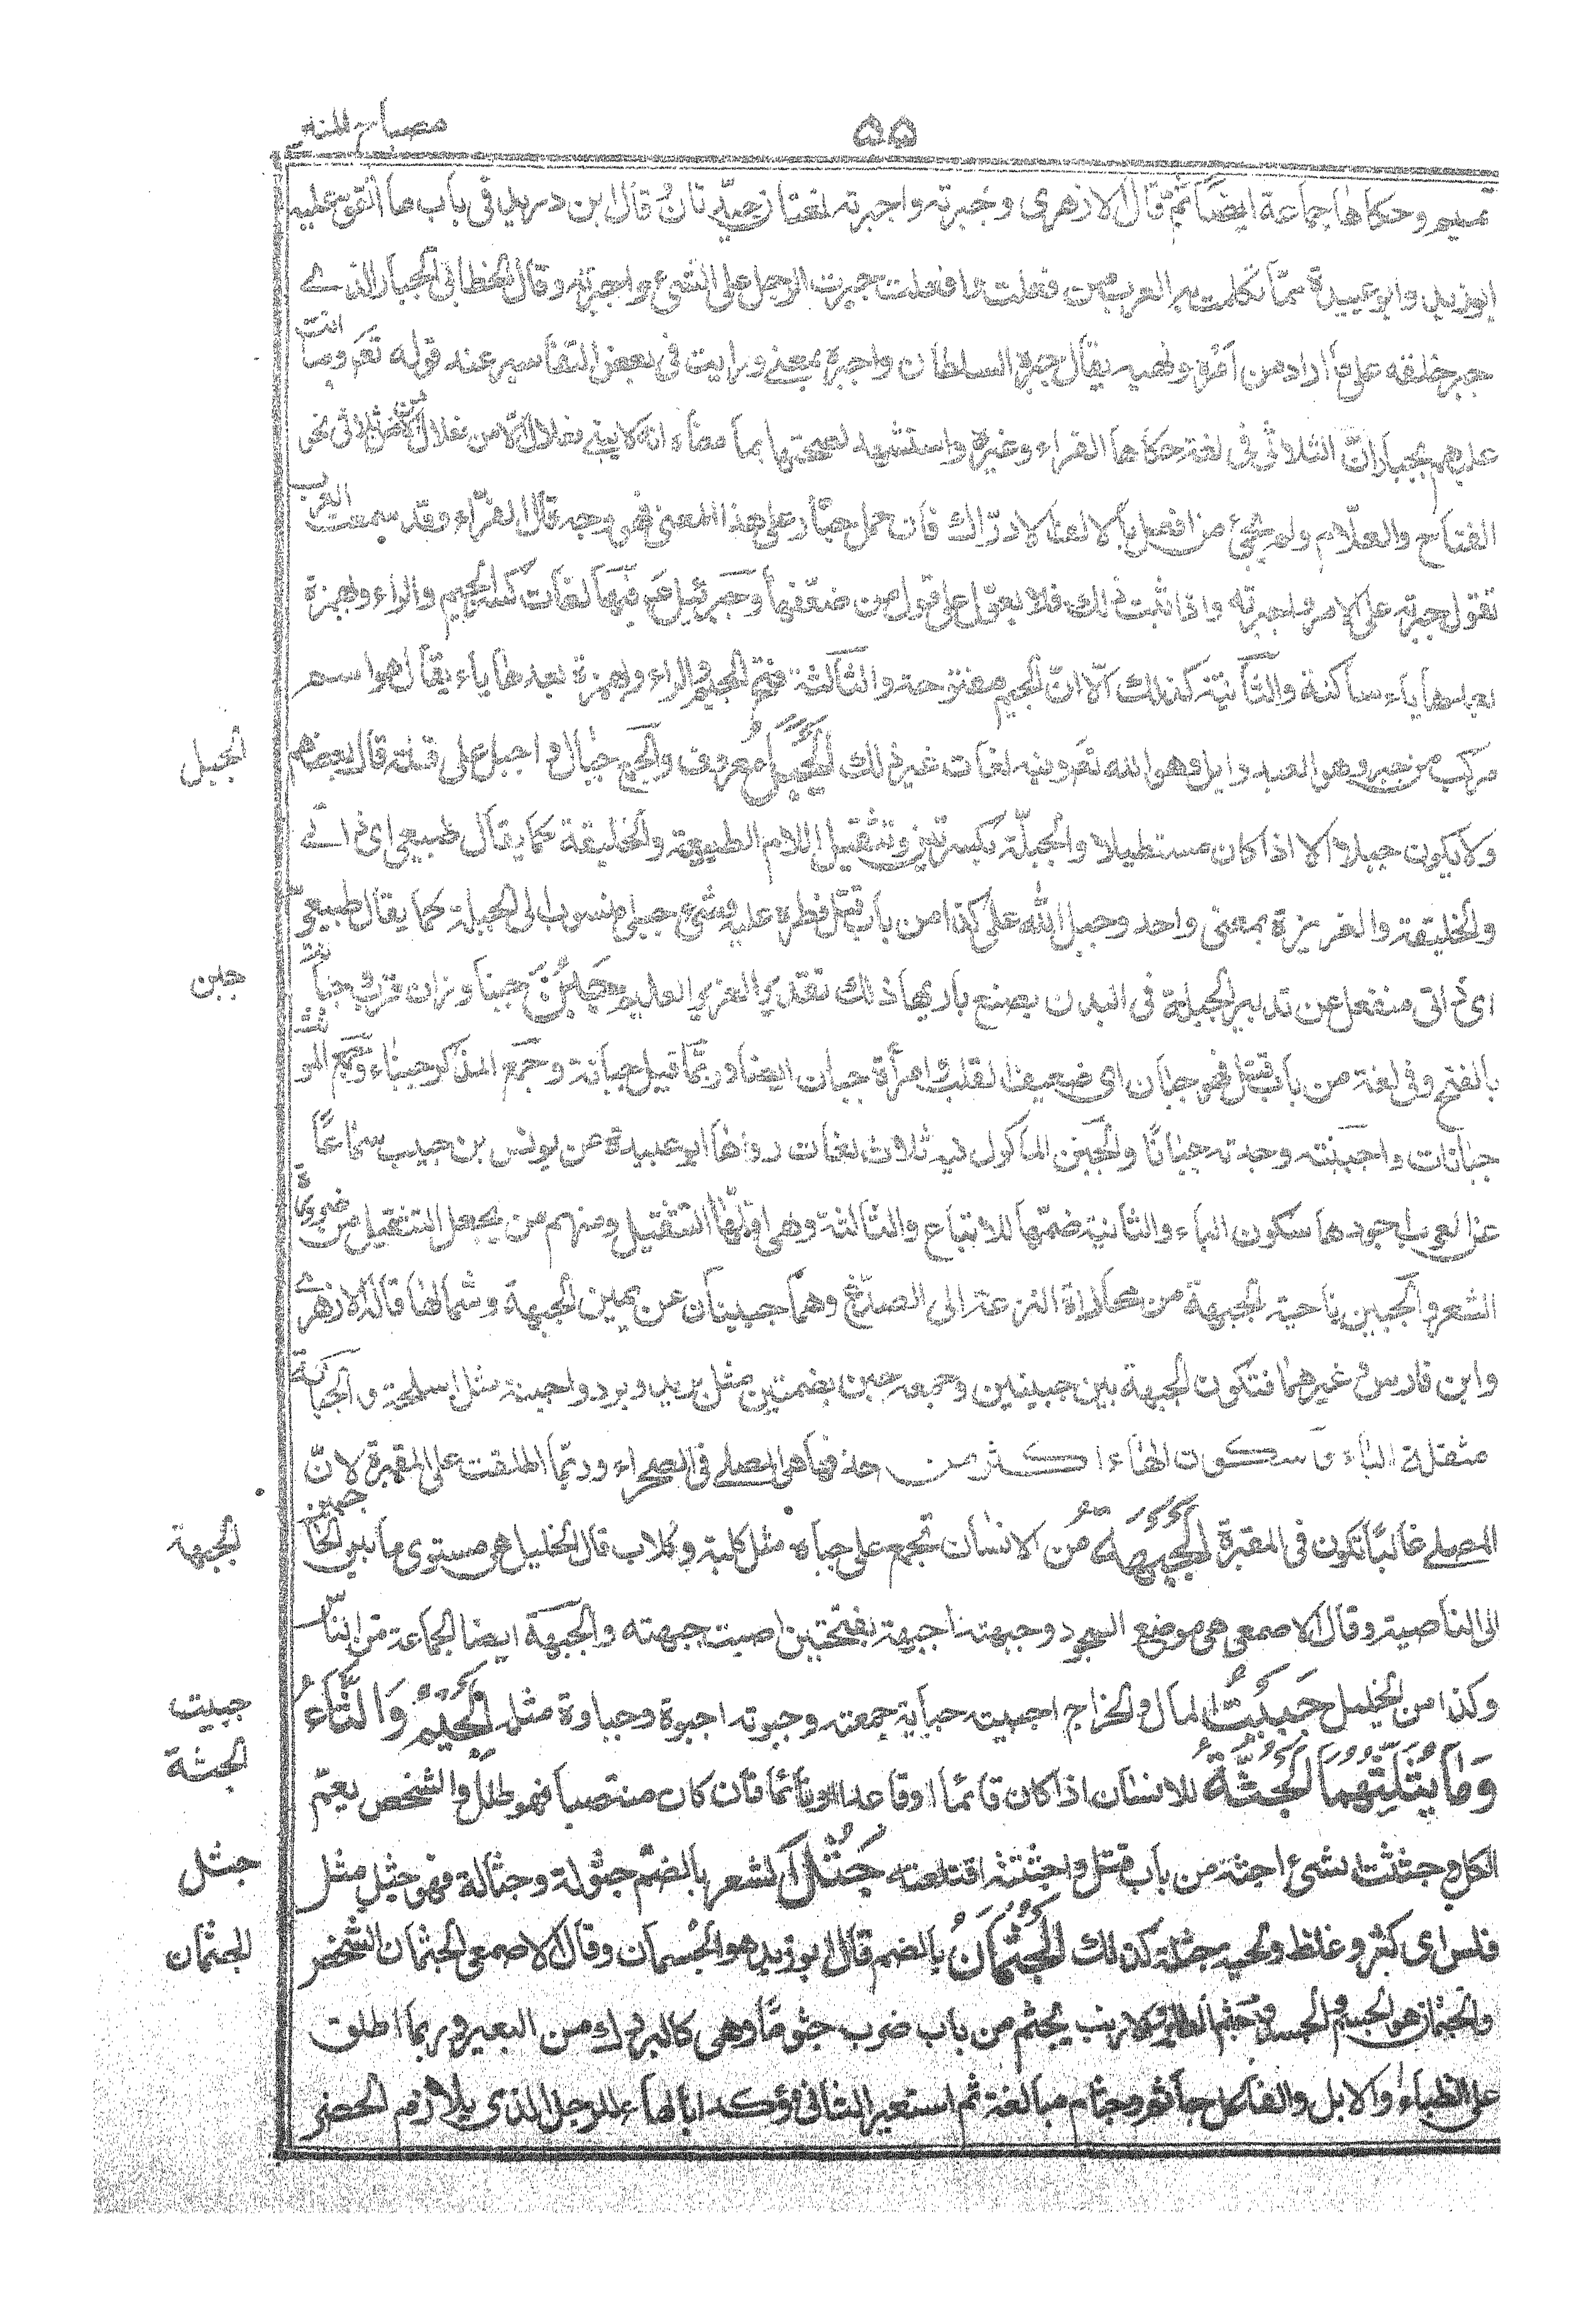 مصباح المنير
۵۵
تميم وحكاها جماعة ايضا ثم قال الازهرى وجبرته واجبرته لغتان جيدتان قال ابن دريد فى باب ما اتفق عليه
ابو زيد وابو عبيدة مما تكلمت به العرب من فعلت وافعلت جبرت الرجل على الشئ واجبرته وقال الخطابى الجبار الذى
جبر خلقه على ما اراد من امره ونهيه يقال جبره السلطان واجبره بمعنى ورايت فى بعض التفاسير عند قوله تعم وما انت
عليهم بجبار ان الثلاثى فى لغة حكاها الفراء وغيره واستشهد لصحتها بما معناه انه لا يبنى فعال الا من فعل ثلاثى نحو
الفتاح والعلام ولم يجئ من افعل بالالف الا دراك فان حمل جبار على هذا المعنى فهو وجه قال الفراء وقد سمعت العرب
تقول جبرته على الامر واجبرته واذا ثبت ذلك فلا يعول على قول من ضعفها وجبرئيل ع فيها لغات كسر الجيم والراء وهمزة
بعدها ياء ساكنة والثانية كذلك الا ان الجيم مفتوحة والثالثة فتح الجيم والراء وهمزة بعدها ياء يقال هو اسم
الجبل
مركب من جبر وهو العبد وايل وهو الله تعم وفيه لغات غير ذلك الجبل معروف والجمع جبال واجبل على قلة قال بعضهم
ولا يكون جبلا الا اذا كان مستطيلا والجبلة بكسرتين وتثقيل اللام الطبيعة والخليقة كما يقال طبيعى اى ذاتى
والخليقة والغريزة بمعنى واحد وجبل الله على كذا من باب قتل فطره عليه وشئ جبلى منسوب الى الجبلة كما يقال طبيعى
جبن
اى ذاتى منفعل عن تدبير الجبلة فى البدن بصنع باريها ذلك تقدير العزيز العليم جبن جبنا وزان قرب جبانة
بالفتح وفى لغة من باب قتل فهو جبان اى ضعيف القلب وامرأة جبان ايضا وربما قيل جبانة وجمع المذكر جبناء وجمع المؤنث
جبانات واجبنته وجدته جبانا والجبن الماكول فيه ثلاث لغات رواها ابو عبيدة عن يونس بن حبيب سماعا
عن العرب اجودها سكون الباء والثانية ضمها للاتباع والثالثة وهى اقلها التثقيل ومنهم من يجعل التثقيل من ضرورة
الشعر والجبين ناحية الجبهة من محاذاة النزعة الى الصدغ وهما جبينان عن يمين الجبهة وشمالها قاله الازهرى
وابن فارس وغيرهما فتكون الجبهة بين جبينين وجمعه جبن بضمتين مثل بريد وبرد واجبنة مثل اسلحة والجبانة
مثقلة الباء وسكون الهاء اكثر من حذفها هى المصلى فى الصحراء وربما اطلقت على المقبرة لان
الجبهة
المصلى غالبا تكون فى المقبرة الجبهة من الانسان تجمع على جباه مثل كلبة وكلاب قال الخليل هى مستوى ما بين الحاجبين
الى الناصية وقال الاصمعى هى موضع السجود وجبهته اجبهه بفتحتين اصبت جبهته والجبهة ايضا الجماعة من الناس
جبيت
وكذا من الخيل جبيت المال والخراج اجبيه جباية جمعته وجبوته اجبوه وجباوة مثله الجيم والثاء
الجثة
وما يثلثهما الجثة للانسان اذا كان قائما او قاعدا او نائما فان كان منتصبا فهو طلل والشخص يعم
جثل
الكل وجثثت الشئ اجثه من باب قتل واجتثثته اقتلعته جثل الشعر بالضم جثولة وجثالة فهو جثل مثل
الجثمان
فلس اى كثر وغلظ ولحية جثلة كذلك الجثمان بالضم قال ابو زيد هو الجسمان وقال الاصمعى الجثمان الشخص
والجثمان هو الجسم والجسد وجثم الطائر والارنب يجثم من باب ضرب جثوما وهى كالبروك من البعير وربما اطلق
على الظباء والابل والفاعل جاثم وجثام مبالغة ثم استعير الثانى مؤكدا بالهاء للرجل الذى يلازم الحضر